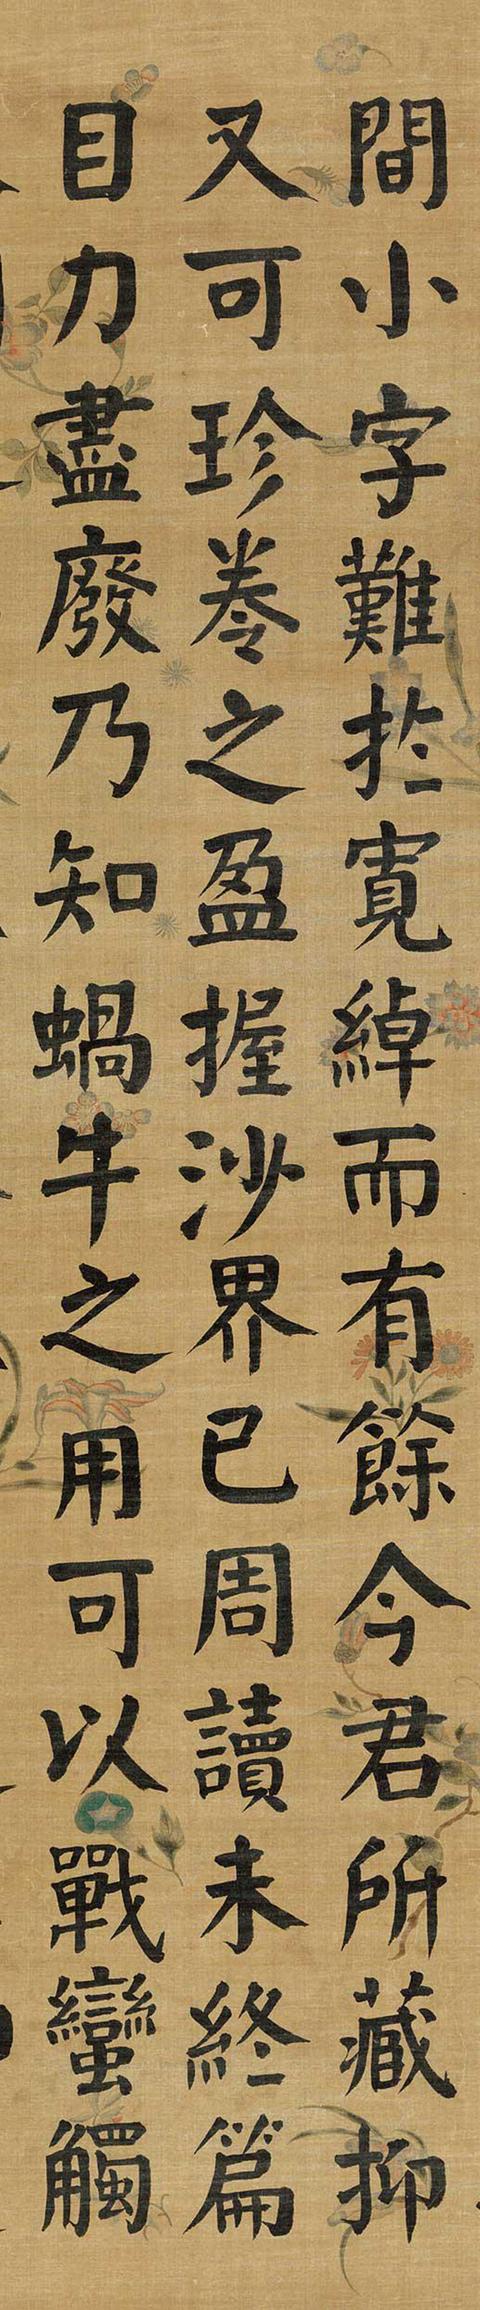 間小字難扵寛綽而有餘今君所藏抑
又可珍卷之盈握沙界已周讀未終篇
目力盡廢乃知蝸牛之用可以戰蠻觸